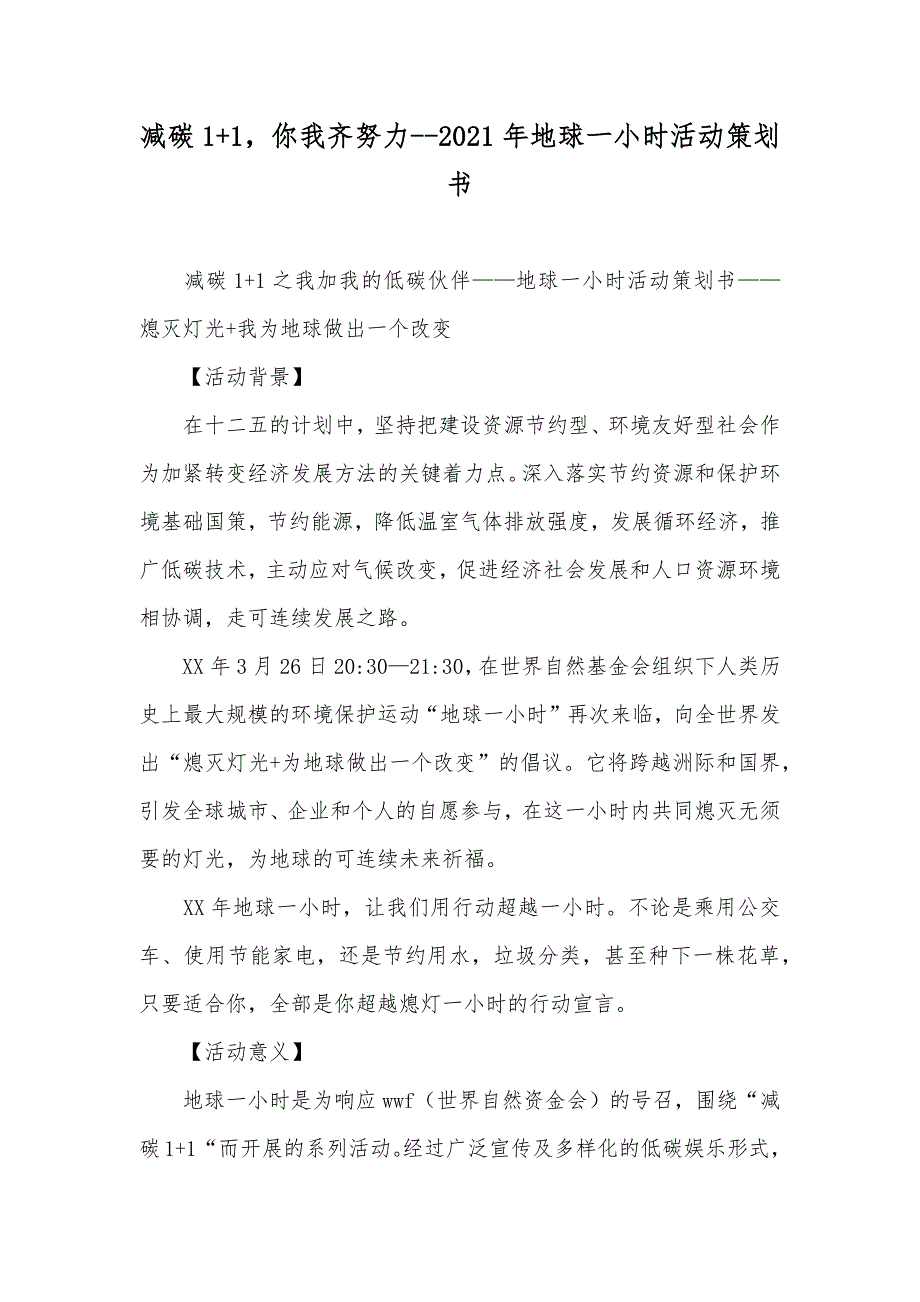 减碳1+1，你我齐努力--2021年地球一小时活动策划
书
减碳1+1之我加我的低碳伙伴——地球一小时活动策划书——
熄灭灯光+我为地球做出一个改变
【活动背景】
在十二五的计划中，坚持把建设资源节约型、环境友好型社会作
为加紧转变经济发展方法的关键着力点。深入落实节约资源和保护环
境基础国策，节约能源，降低温室气体排放强度，发展循环经济，推
广低碳技术，主动应对气候改变，促进经济社会发展和人口资源环境
相协调，走可连续发展之路。
XX年3月26日20:30—21:30，在世界自然基金会组织下人类历
史上最大规模的环境保护运动“地球一小时”再次来临，向全世界发
出“熄灭灯光+为地球做出一个改变”的倡议。它将跨越洲际和国界，
引发全球城市、企业和个人的自愿参与，在这一小时内共同熄灭无须
要的灯光，为地球的可连续未来祈福。
XX年地球一小时，让我们用行动超越一小时。不论是乘用公交
车、使用节能家电，还是节约用水，垃圾分类，甚至种下一株花草，
只要适合你，全部是你超越熄灯一小时的行动宣言。
【活动意义】
地球一小时是为响应wwf（世界自然资金会）的号召，围绕“减
碳1+1“而开展的系列活动。经过广泛宣传及多样化的低碳娱乐形式，